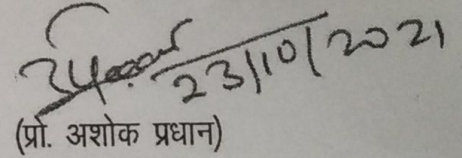 23/10/2021
(प्रो. अशोक प्रधान)